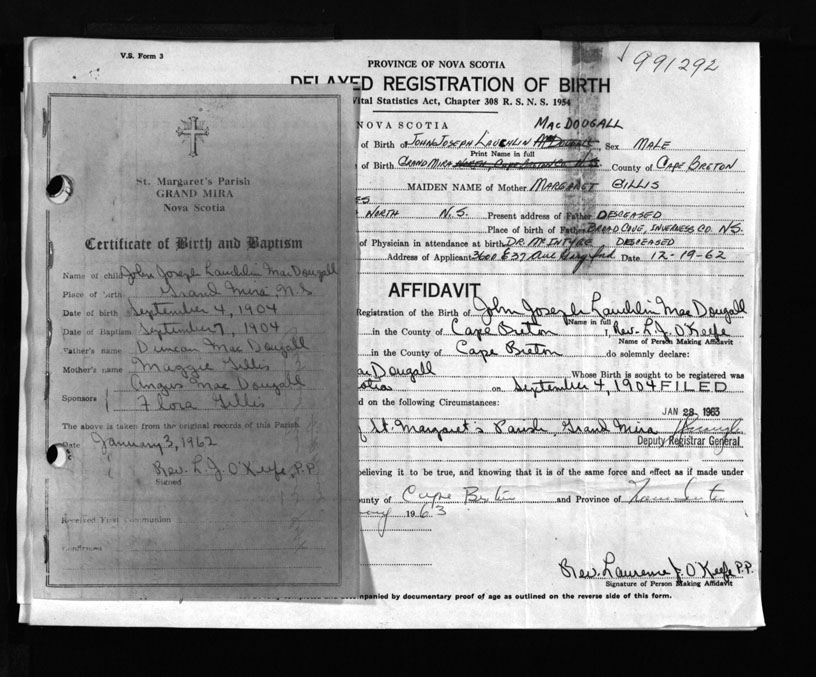 V.S. Form 3
991292
PROVINCE OF NOVA SCOTIA
DELAYED REGISTRATION OF BIRTH
Vital Statistics Act, Chapter 308 R. S. N. S. 1954
NOVA SCOTIA MACDOUGALL
of Birth of JOHN JOSEPH LAUCHLIN Sex MALE
Print Name in full
of Birth. GRAND MIRA County of CAPE BRETON
MAIDEN NAME of Mother MARGARET GILLIS
NORTH N.S. Present address of Father DECEASED
Place of birth of Father BROAD COVE, INVERNESS CO. N.S.
of Physician in attendance at birth DR. MCINTYRE DECEASED
Address of Applicant Date 12-19-62
AFFIDAVIT
Registration of the Birth of John Joseph Lauchlin MacDougall
Name in full
in the County of Cape Breton I, Rev. L. J. O'Keefe
Name of Person Making Affidavit
in the County of Cape Breton do solemnly declare:
MacDougall Whose Birth is sought to be registered was
on September 4, 1904 FILED
on the following Circumstances:
JAN 28 1963
of St. Margaret's Parish, Grand Mira
Deputy Registrar General
believing it to be true, and knowing that it is of the same force and effect as if made under
County of Cape Breton and Province of Nova Scotia
1963
Rev. Laurence J. O'Keefe P.P.
Signature of Person Making Affidavit
accompanied by documentary proof of age as outlined on the reverse side of this form.
St. Margaret's Parish
GRAND MIRA
Nova Scotia
Certificate of Birth and Baptism
Name of child John Joseph Lauchlin MacDougall
Place of birth Grand Mira, N.S.
Date of birth September 4, 1904
Date of Baptism September 7, 1904
Father's name Duncan MacDougall
Mother's name Maggie Gillis
Angus MacDougall
Sponsors
Flora Gillis
The above is taken from the original records of this Parish
Date January 3, 1962
Rev. L. J. O'Keefe, P.P.
Signed
Received First Communion
Confirmed